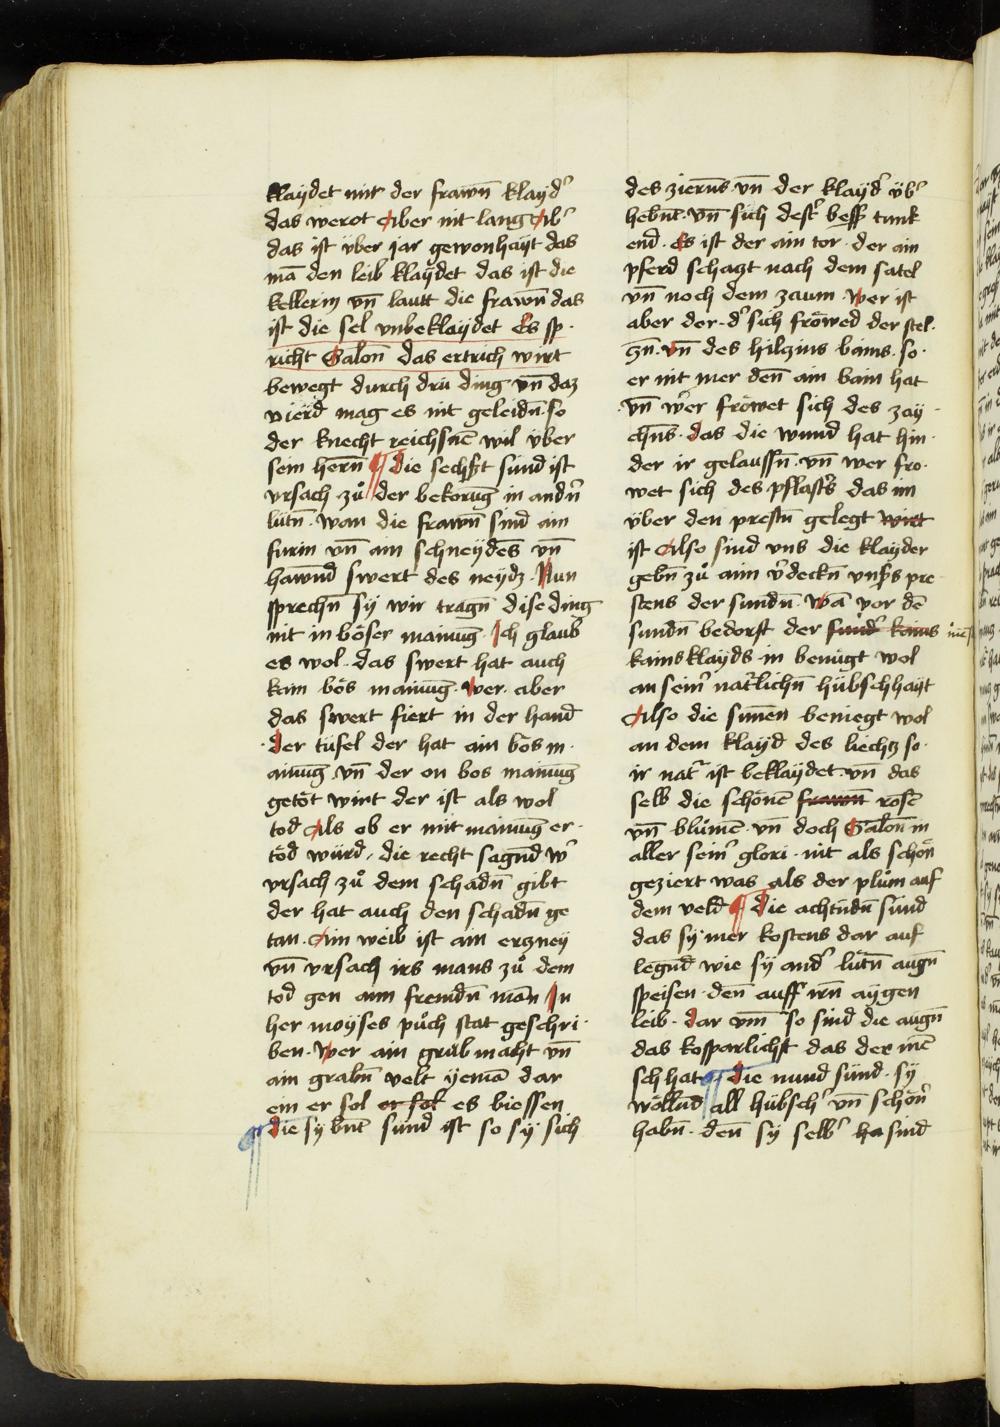 klaydet mit der frawn̄ klayd᷑
das werot Aber nit lang Ab᷑
das ist v̈ber jar gewonhayt das
mā den leib klaydet das ist die
kellerin vn̄ lautt die frawn̄ das
ist die sel vnbeklaydet Es sp·
richt Salon̄ das ertrich wirt
bewegt durch drü ding vn̄ daz
vierd mag es nit geleidn̄· so
der knecht reichsnē wil v̈ber
sein hern̄ ¶ die sechßt sünd ist
vrsach zů der bekorūg in andn᷑
lütn̄· wan die frawn̄ sind ain
furin vn̄ ain schneydēs vn̄
hawnd swert des neydz· Nun
sprechn̄ sy wir tragn̄ dise ding
nit in böser mainūg· Ich glaub
es wol· das swert hat auch
kain bös mainūg· wer· aber
das swert fiert in der hand
·der tüfel der hat ain bös m·
ainūg vn̄ der on bos mainūg
getöt wirt der ist als wol
tod Als ob er mit mainūg er·
töd würd· die recht sagnd w᷑
vrsach zů dem schadn̄ gibt
der hat auch den schadn̄ ge
tan· Ain weib ist ain erczney
vn̄ vrsach irs mans zů dem
tod gen aim fremdn̄ man In
her moyses půch stat geschri·
ben· wer ain grůb macht vn̄
ain grabn̄ velt yemā dar
ein er sol er sol es biessen
¶ die sybnt sünd ist so sy sich
des zierns· vn̄ der klayd᷑ v̈b᷑
hebnt· vn̄ sich dest᷑ bess᷑ tunk
end· Es ist der ain tor· der ain
pferd schaczt nach dem satel
vn̄ noch dem zaum· wer ist
aber der· d᷑ sich fröwed der stel·
czn̄· vn̄ des hilczins bains· so·
er nit mer den̄ ain bain hat
·vn̄ w᷑er fröwet sich des zay·
chns· das die wund hat hin·
der ir gelaussn̄· vn̄ wer fro·
wet sich des pflasters das im
v̈ber den prestn̄ gelegt wirt
ist Also sind vns die klayder
gebn̄ zů aim v᷑deckn̄ vns᷑s pre
stens der sundn̄· wā vor dē
sundn̄ bedorft der sünd᷑ kains
kains klayds· in benügt wol
an sein᷑ nat᷑lichn̄ hübschhayt
Also die sunnen beniegt wol
an dem klayd des liechtz so·
ir nat᷑ ist beklaydet· vn̄ das
selb die schönen frawn̄ rosē
vn̄ blůmē· vn̄ doch Salon̄ in
aller sein᷑ glori· nit als schön
geziert was als der plům auf
dem veld ¶ die achtndn̄ sünd
das sy mer kostens dar auf
legnd wie sy and᷑ lütn̄ augn̄
speisen· den̄ auff irn̄ aygen
leib· dar vm̄ so sind die augn̄
das kosparlichst das der mē
sch hat ¶ die nund sünd· sy
wöllnd all hübsch᷑ vn̄ schön᷑
habn̄· den̄ sy selb᷑ ha sind